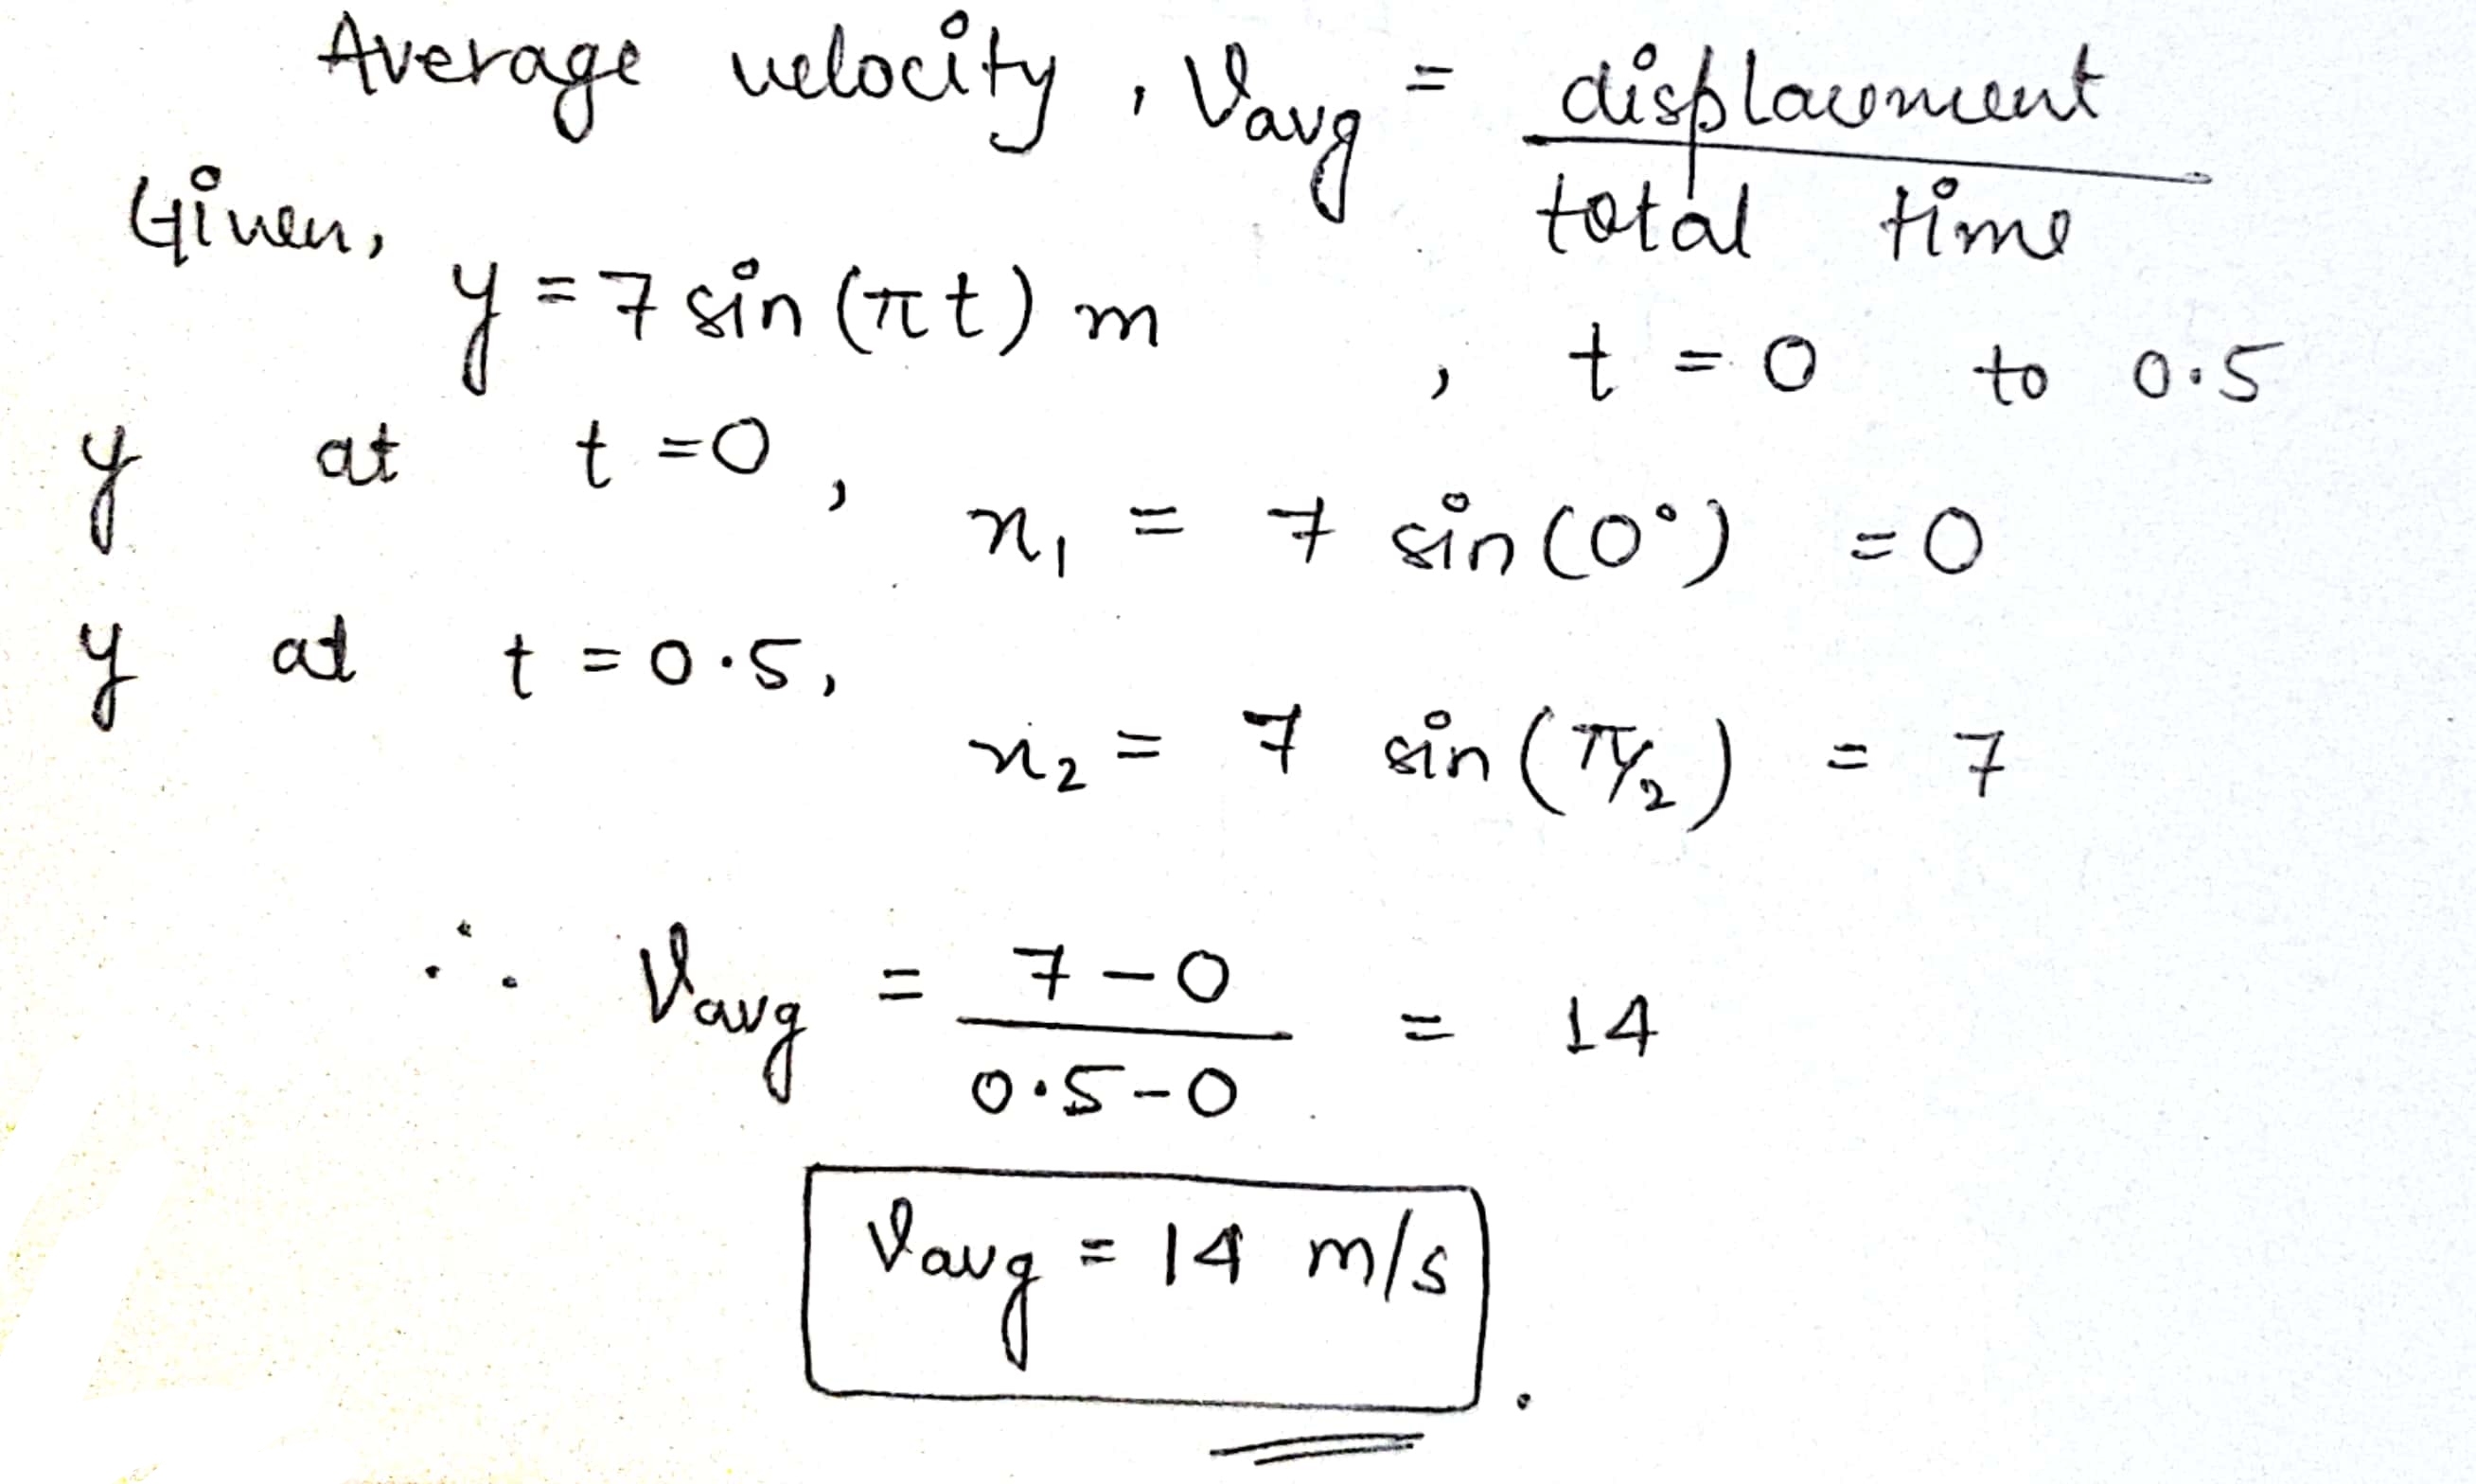 Average velocity, Vavg = displacement / total time
Given,
y = 7 sin (πt) m , t = 0 to 0.5
y at t = 0, x₁ = 7 sin (0°) = 0
y at t = 0.5,
x₂ = 7 sin (π/2) = 7
∴ Vavg = 7 - 0 / 0.5 - 0 = 14
Vavg = 14 m/s.